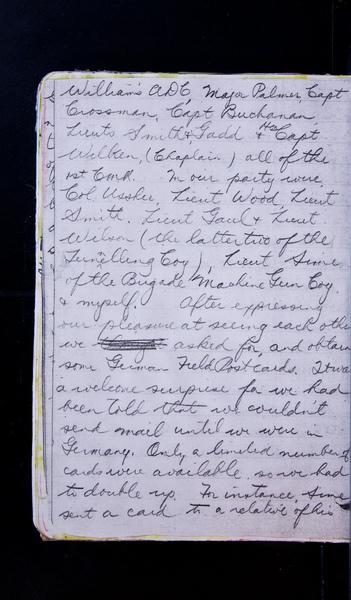 William's ADC, Major Palmer, Capt
Crossman, Capt Buchanan,
Lieuts Smith & Gadd & Hs Capt
Wilken, (Chaplain) all of the
1st C.M.R. In our party were
Col. Ussher, Lieut Wood, Lieut
Smith. Lieut Faul & Lieut
Wilson (the latter two of the
Tunelling Coy), Lieut Sime
of the Brigade Machine Gun Coy.
& myself. After expressing
our pleasure at seeing each othe
we asked for, and obtain
some German Field Post cards. It wa
a welcome surprise for we had
been told that we couldn't
send mail until we were in
Germany. Only a limited number of
cards were available, so we had
to double up. For instance, Sime
sent a card to a relative of his